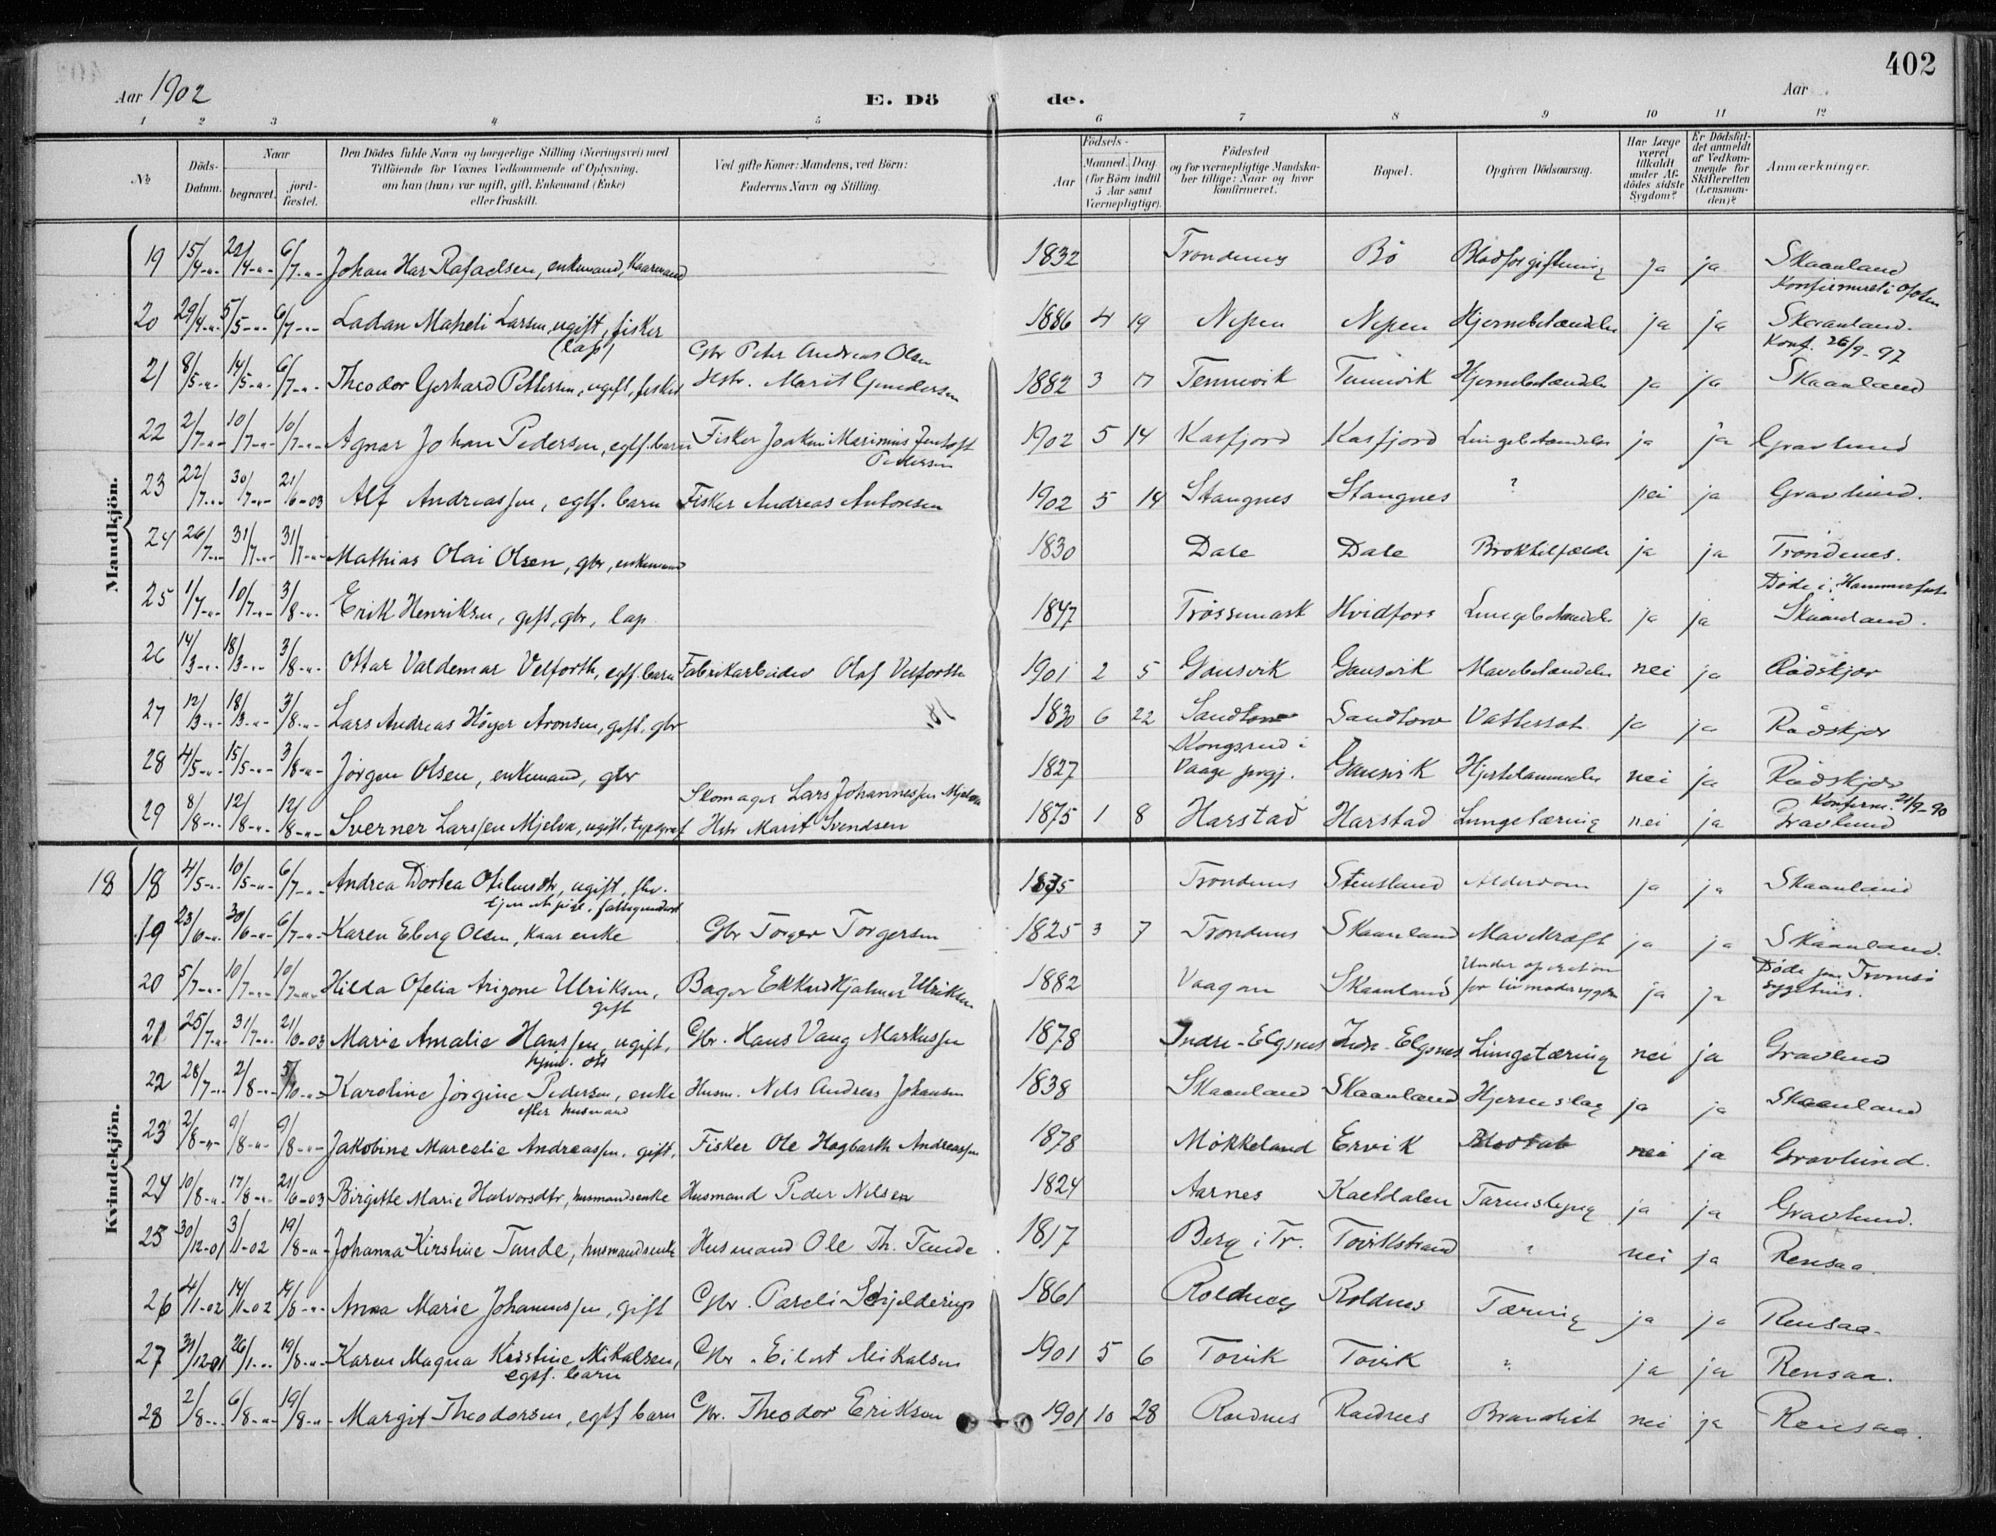 402
Aar 1902
E. Dö de.
Aar
1 2 3 4 5 6 7 8 9 10 11 12
№
Döds-Datum.
Naar
begravet.
jord-fæstet.
Den Dödes fulde Navn og borgerlige Stilling (Næringsvei) med Tilföiende for Voxnes Vedkommende af Oplysning, om han (hun) var ugift, gift, Enkemand (Enke) eller fraskilt.
Ved gifte Koner: Mandens, ved Börn: Faderens Navn og Stilling.
Födsels-
Aar
Maaned. Dag.
(for Börn indtil 5 Aar samt Værnepligtige).
Födested og for værnepligtige Mandskaber tillige: Naar og hvor konfirmeret.
Bopæl.
Opgiven Dödsaarsag.
Har Læge været tilkaldt under Afdödes sidste Sygdom?
Er Dödsfaldet anmeldt af Vedkommende for Skifteretten (Lensmanden)?
Anmærkninger.
Mandkjön.
19 15/4 -"- 22/4 -"- 6/7 -"- Johan Har Rafaelsen, enkemand, Kaarmand 1832 Trondenes Bö Blodforgiftning ja ja Skaanland
20 29/4 -"- 5/5 -"- 6/7 -"- Ladan Larsen, ugift, fisker (lap) 1886 4 19 Nessen Nessen Hjernebetændelse ja ja Konfirmert i Ofoten Skaanland.
21 8/5 -"- 14/5 -"- 6/7 -"- Theodor Gerhard Pettersen, ugift, fisker Gbr Peter Andreas Olsen Hstr. Marit 1882 3 17 Tennevik Tennevik Hjernebetændelse ja ja Konf. 26/9-97 Skaanland
22 2/7 -"- 10/7 -"- 10/7 -"- Agnar Johan Pedersen, egtf. barn Fisker Joakim Marinius Jentoft Pedersen 1902 5 14 Kasfjord Kasfjord Lungebetændelse ja ja Gravlund
23 22/7 -"- 30/7 -"- 21/6-03 Alf Andreassen, egtf. barn Fisker Andreas Antonsen 1902 5 14 Stangnes Stangnes ? nei ja Gravlund.
24 26/7 -"- 31/7 -"- 31/7 -"- Mathias Olai Olsen, gbr, enkemand 1830 Dale Dale Broktilfælde ja ja Trondenes.
25 1/7 -"- 10/7 -"- 3/8 -"- Erik Henriksen, gift, gbr, lap 1847 Trössemark Hvidfors Lungebetændelse ja ja Döde i Hammerfest Skaanland.
26 14/3 -"- 18/3 -"- 3/8 -"- Ottar Valdemar Velforth, egtf. barn Fabrikarbeider Olaf Velforth 1901 2 5 Gansvik Gansvik Mavebetændelse nei ja Rödskjær
27 12/3 -"- 18/3 -"- 3/8 -"- Lars Andreas Höyer Aronsen, gift, gbr 18 1830 6 22 Sandtorv Sandtorv Vattersot ja ja Rödskjær
28 4/5 -"- 15/5 -"- 3/8 -"- Jörgen Olsen, enkemand, gbr 1827 Kongsrud i Vaage prgj. Gansvik nei ja Rödskjær
29 8/8 -"- 12/8 -"- 12/8 -"- Sverner Larssen Mjelva, ugift, typograf Skomager Lars Johannessen Mjelva Hstr Marit Svendsen 1875 1 8 Harstad Harstad Lungetæring nei ja Konfirm. 21/9-90 Gravlund
Kvindekjön.
18 18 4/5 -"- 10/5 -"- 6/7 -"- Andrea Dortea, ugift, 1835 Trondenes Stensland Alderdom ja ja Skaanland
19 23/6 -"- 30/6 -"- 6/7 -"- Karen Eberg Olsen, Kaarenke Gbr Torger Torgersen 1825 3 7 Trondenes Skaanland Mavekræft ja ja Skaanland.
20 5/7 -"- 10/7 -"- 10/7 -"- Hilda Ofelia Arizone Ulriksen, gift Bager Ekkard Hjalmar Ulriksen 1882 Vaagan Skaanland Under operation for livmodersygdom ja ja Döde paa Tromsö sygehus.
21 25/7 -"- 31/7 -"- 21/6-03 Marie Amalie Hanssen, ugift, Gbr. Hans Vang Markussen 1878 Indre-Elgsnes Indr-Elgsnes Lungetæring nei ja Gravlund
22 28/7 -"- 2/8 -"- 5/10 -"- Karoline Jörgine Pedersen, enke efter husmand Husm. Nels Andreas Johansen 1838 Skaanland Skaanland Hjerneslag ja ja Skaanland
23 2/8 -"- 9/8 -"- 9/8 -"- Jakobine Marcelie Andreassen, gift, Fisker Ole Hagbarth Andreassen 1878 Mökkeland Ervik Blodtab nei ja Gravlund.
24 10/8 -"- 17/8 -"- 21/6-03 Birgitte Marie Halvorsdtr, husmandsenke Husmand Peder Nilsen 1824 Aarnes Kaetdalen Tarmslyng ja ja Gravlund.
25 30/12-01 3/1-02 19/8 -"- Johanna Kirstine Tande, husmandsenke Husmand Ole Th. Tande 1817 Berg i Tr. Tovikstrand ? nei ja Rensaa.
26 4/1-02 14/1-02 19/8 -"- Anna Marie Johannessen, gift Gbr. Pareli Schjelderup 1861 Roldnes Roldnes Tæring ja ja Rensaa.
27 31/12-01 26/1 -"- 19/8 -"- Karen Magna Kirstine Mikalsen, egtf. barn Gbr. Eilert Mikalsen 1901 5 6 Tovik Tovik ? ja ja Rensaa.
28 2/8 -"- 6/8 -"- 19/8 -"- Margit Theodorsen, egtf barn Gbr. Theodor Eriksen 1901 10 28 Roldnes Roldnes nei ja Rensaa.